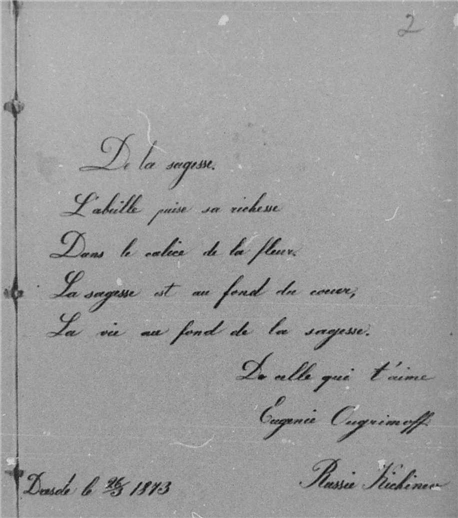 2
De la sagesse.
L'abeille puise sa richesse
Dans le calice de la fleur.
La sagesse est au fond du coeur,
La vie au fond de la sagesse.
De celle qui t'aime
Eugenie Ougrimoff.
Dresde le 26/3 1873
Russie Kichinew